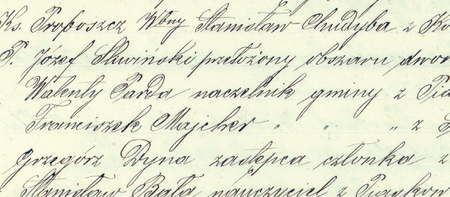 Ks. Proboszcz Wbny Stanisław Chudyba z
P. Józef Śliwiński przełożony obszaru dwor
Walenty Parda naczelnik gminy z
Franciszek Majcher " " " z
Grzegórz Dyna zastępca członka z
Stanisław Bała nauczyciel z Piaskow